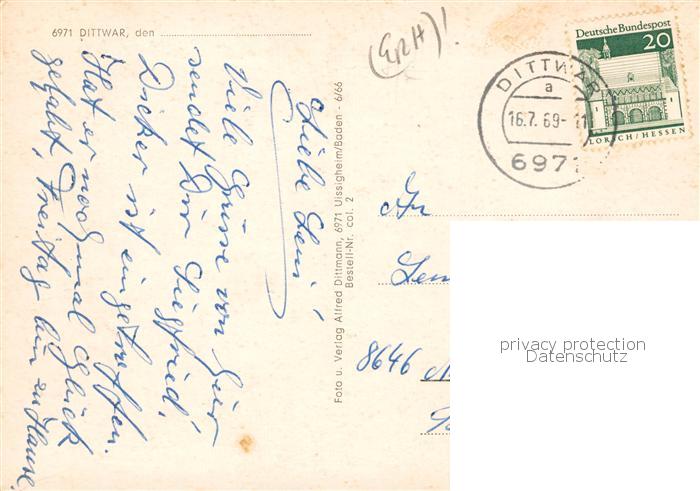 6971 DITTWAR, den
(ERH)!
Liebe Leni!
Viele Grüsse von hier
sendet Dir Siegfried!
Dicker ist eingetroffen.
Hat er nochmal Glück
gehabt, Freitag bin zu Hause
Foto u. Verlag Alfred Dittmann, 6971 Uissigheim/Baden - 6/66
Bestell-Nr. col. 2
DITTWAR
a
16.7.69-11
6971
Deutsche Bundespost
20
LORSCH/HESSEN
An
Len
8646
privacy protection
Datenschutz